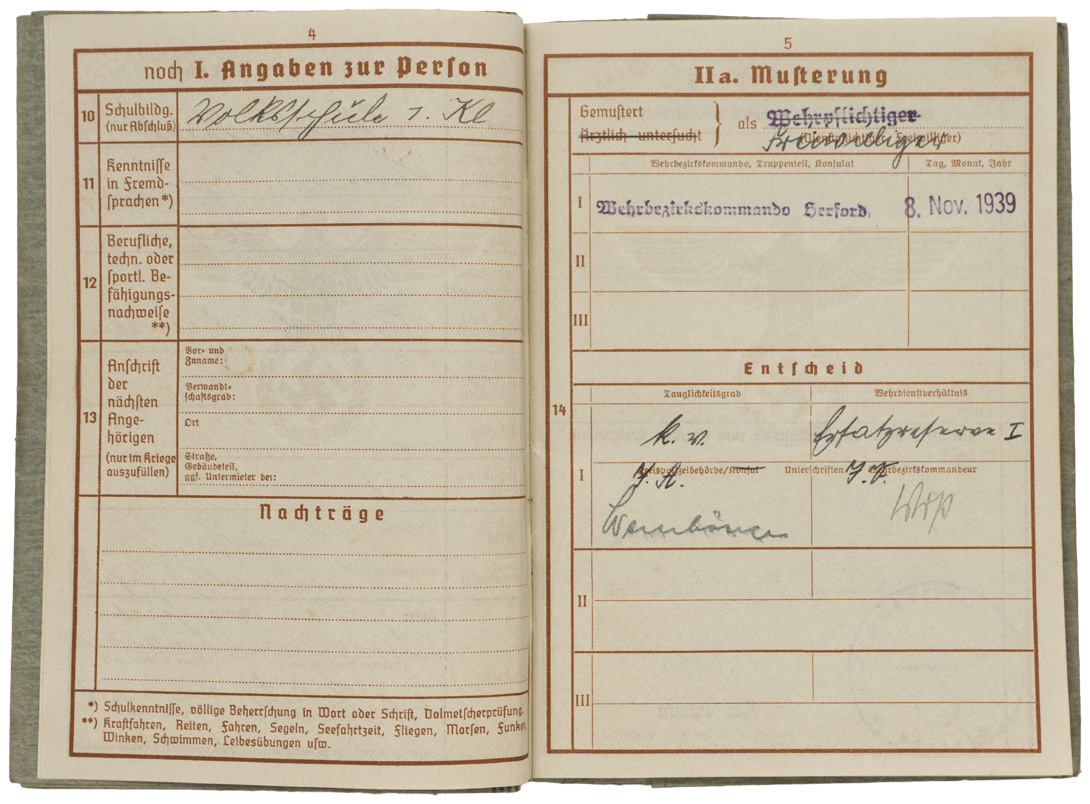 4
noch I. Angaben zur Person
10
Schulbildg.
(nur Abschluß)
Volksschule 1. Kl
11
Kenntnisse
in Fremd-
sprachen*)
12
Berufliche,
techn. oder
sportl. Be-
fähigungs-
nachweise
**)
13
Anschrift
der
nächsten
Ange-
hörigen
(nur im Kriege
auszufüllen)
Vor- und
Zuname:
Verwandt-
schaftsgrad:
Ort
Straße,
Gebäudeteil,
ggf. Untermieter bei:
Nachträge
*) Schulkenntnisse, völlige Beherrschung in Wort oder Schrift, Dolmetscherprüfung.
**) Kraftfahren, Reiten, Fahren, Segeln, Seefahrtzeit, Fliegen, Morsen, Funken
Winken, Schwimmen, Leibesübungen usw.
5
IIa. Musterung
Gemustert
Ärztlich untersucht
als Wehrpflichtiger
(Dienstpflichtiger, Freiwilliger)
Freiwilliger
Wehrbezirkskommando, Truppenteil, Konsulat
Tag, Monat, Jahr
I
Wehrbezirkskommando Herford,
8. Nov. 1939
II
III
Entscheid
14
Tauglichkeitsgrad
Wehrdienstverhältnis
k. v.
Ersatzreserve I
I
Kreispolizeibehörde/Konsul
Unterschriften
Wehrbezirkskommandeur
J. A.
II
III